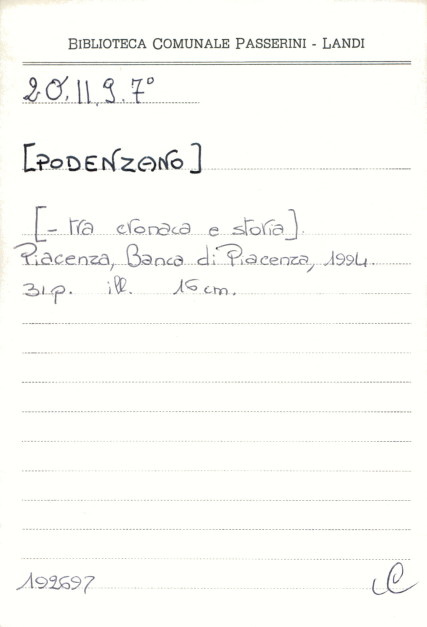 BIBLIOTECA COMUNALE PASSERINI - LANDI
2Ø.II.9.7°
[PODENZANO]
[- tra cronaca e storia].
Piacenza, Banca di Piacenza, 1994.
31p. ill. 16 cm.
192697